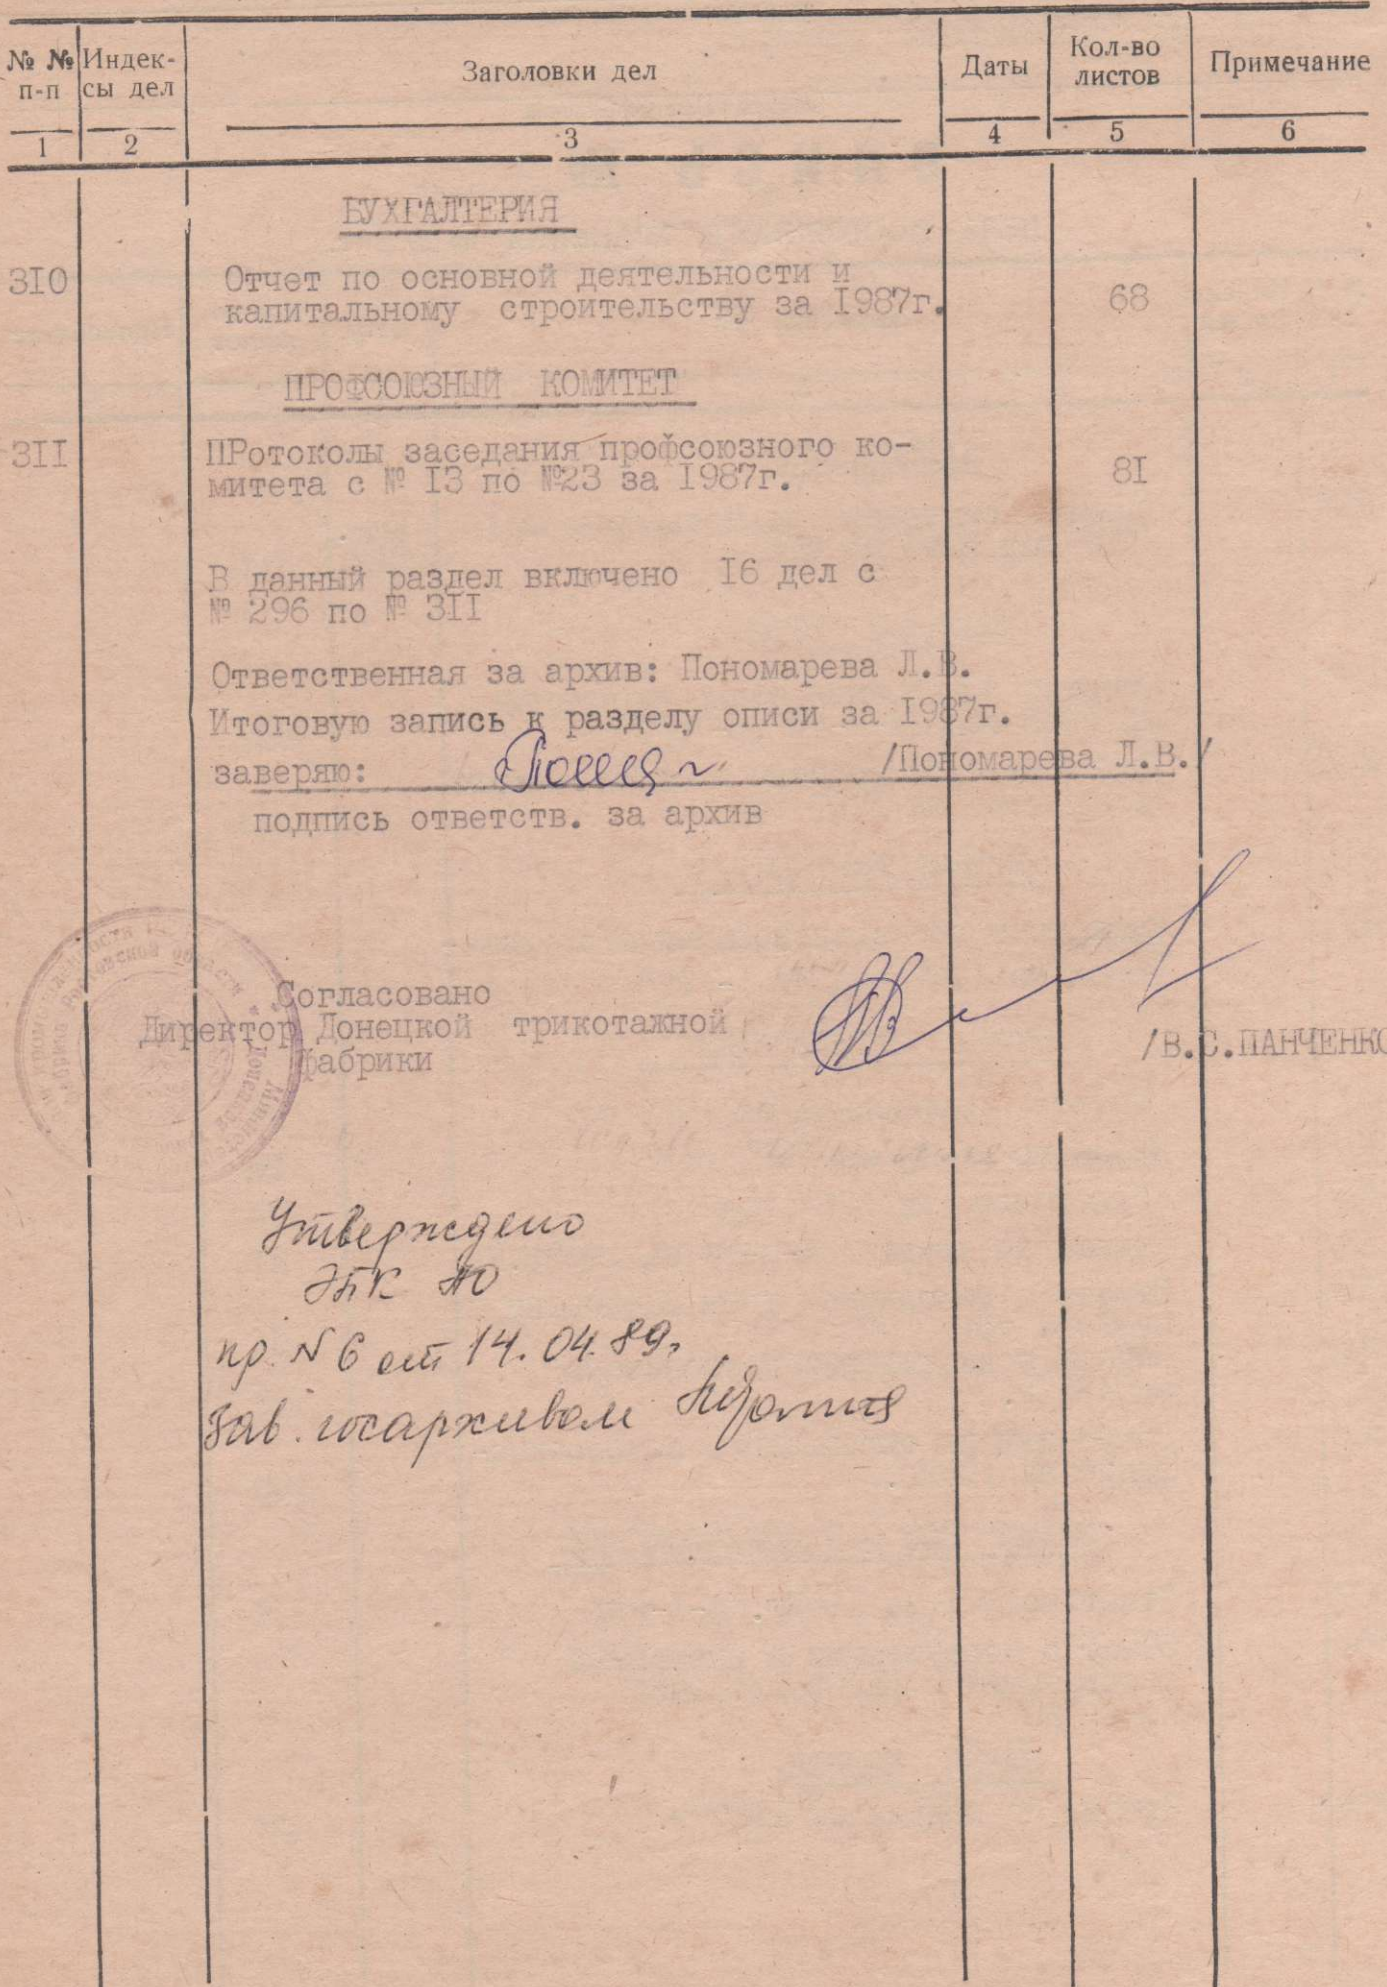 № № п-п
Индек-
сы дел
Заголовки дел
Даты
Кол-во
листов
Примечание
1 2 3 4 5 6
БУХГАЛТЕРИЯ
310 Отчет по основной деятельности и
капитальному строительству за I987г. 68
ПРОФСОЮЗНЫЙ КОМИТЕТ
3II ПРотоколы заседания профсоюзного ко-
митета с № I3 по №23 за I987г. 8I
В данный раздел включено I6 дел с
№ 296 по № 3II
Ответственная за архив: Пономарева Л.В.
Итоговую запись к разделу описи за I987г.
заверяю: /Пономарева Л.В./
подпись ответств. за архив
Согласовано
Директор Донецкой трикотажной /В.С.ПАНЧЕНКО
фабрики
Утверждено
ЭПК АО
пр. N 6 от 14.04.89г
Зав. госархивом